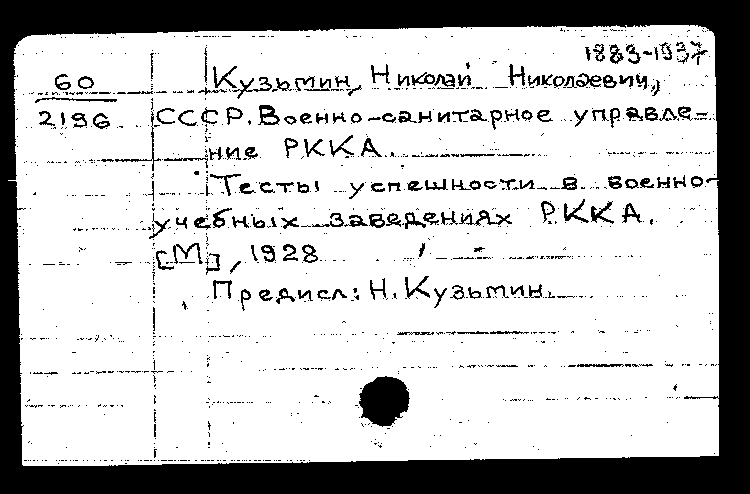 1883-1937
60 Кузьмин, Николай Николаевич,
2196 СССР. Военно-санитарное управле-
ние РККА.
Тесты успешности в военно-
учебных заведениях РККА.
[М], 1928
Предисл: Н. Кузьмин.